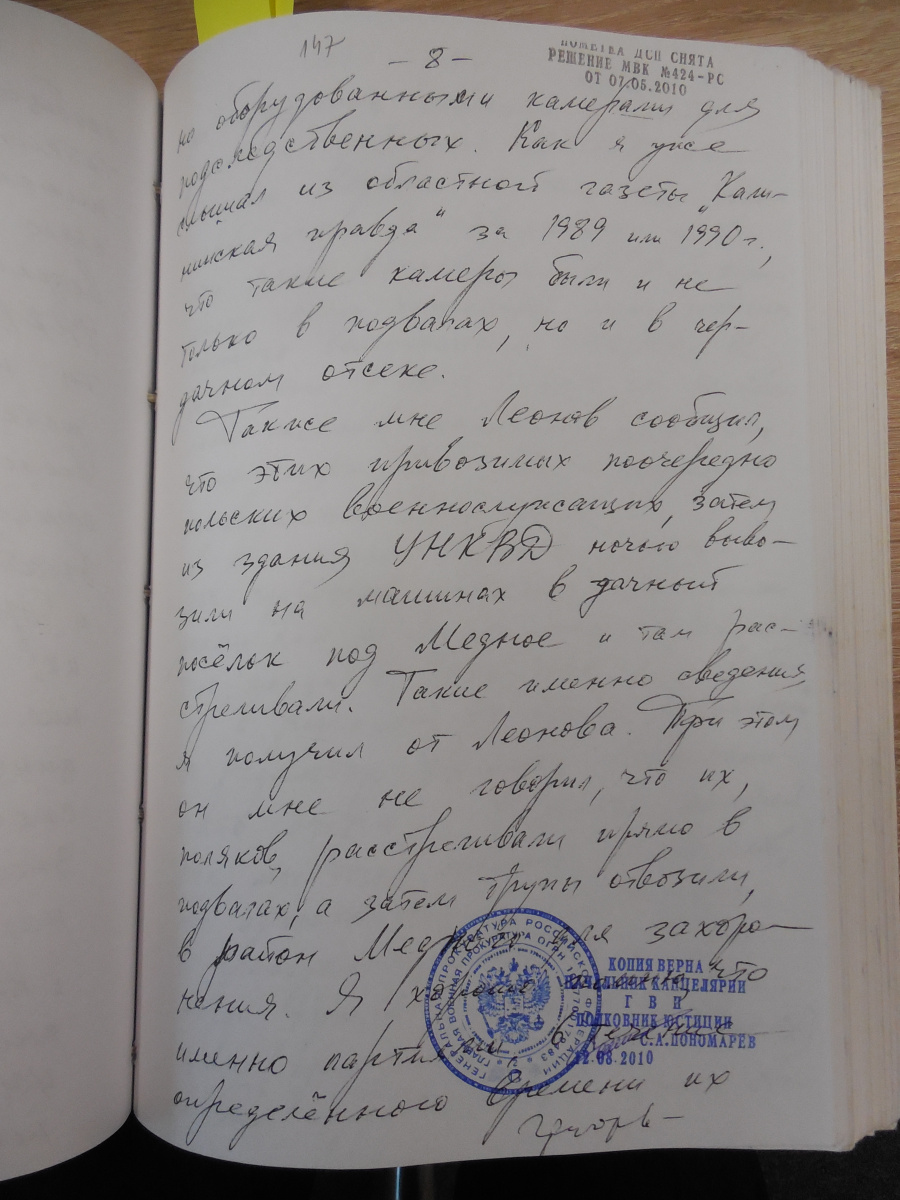 147
- 8 -
ПОМЕТКА ДСП СНЯТА
РЕШЕНИЕ МВК №424-РС
ОТ 07.05.2010
но оборудованными камерами для
подследственных. Как я уже
слышал из областной газеты „Кали-
нинская правда" за 1989 или 1990 г.,
что такие камеры были и не
только в подвалах, но и в чер-
дачном отсеке.
Также мне Леонов сообщил,
что этих привозимых поочередно
польских военнослужащих, затем
из здания УНКВД ночью выво-
зили на машинах в дачный
посёлок под Медное и там рас-
стреливали. Такие именно сведения
я получил от Леонова. При этом
он мне не говорил, что их,
поляков, расстреливали прямо в
подвалах, а затем трупы отвозили,
в район Медного для захоро-
нения. Я хорошо что
именно партиями, в течение
определённого времени их
ГЕНЕРАЛЬНАЯ ПРОКУРАТУРА РОССИЙСКОЙ ФЕДЕРАЦИИ
ГЛАВНАЯ ВОЕННАЯ ПРОКУРАТУРА
КОПИЯ ВЕРНА
НАЧАЛЬНИК КАНЦЕЛЯРИИ
Г В П
ПОЛКОВНИК ЮСТИЦИИ
С.А.ПОНОМАРЕВ
12.08.2010